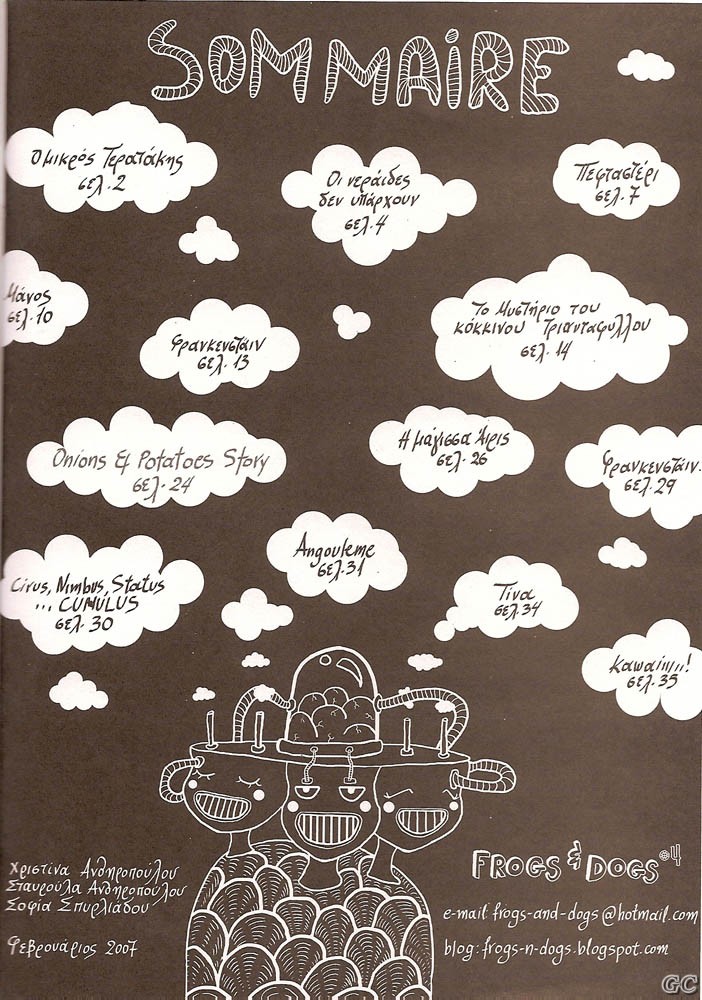 SOMMAiRE
Ο μικρός Τερατάκης
σελ. 2
Οι νεράιδες
δεν υπάρχουν
σελ. 4
Πεφταστέρι
σελ. 7
Μάνος
σελ. 10
Φρανκενστάιν
σελ. 13
Το Μυστήριο του
κόκκινου Τριανταφυλλου
σελ. 14
Onions & Potatoes Story
σελ. 24
Η μάγισσα Άιρις
σελ. 26
Φρανκενστάιν.
σελ. 29
Cirus, Nimbus, Status
... CUMULUS
σελ. 30
Angouleme
σελ. 31
Τίνα
σελ. 34
σελ. 35
Χριστίνα Ανθηροπούλου
Σταυρούλα Ανθηροπούλου
Σοφία Σπυρλιάδου
Φεβρουάριος 2007
FROGS & DOGS #4
e-mail frogs-and-dogs@hotmail.com
blog: frogs-n-dogs.blogspot.com
GC